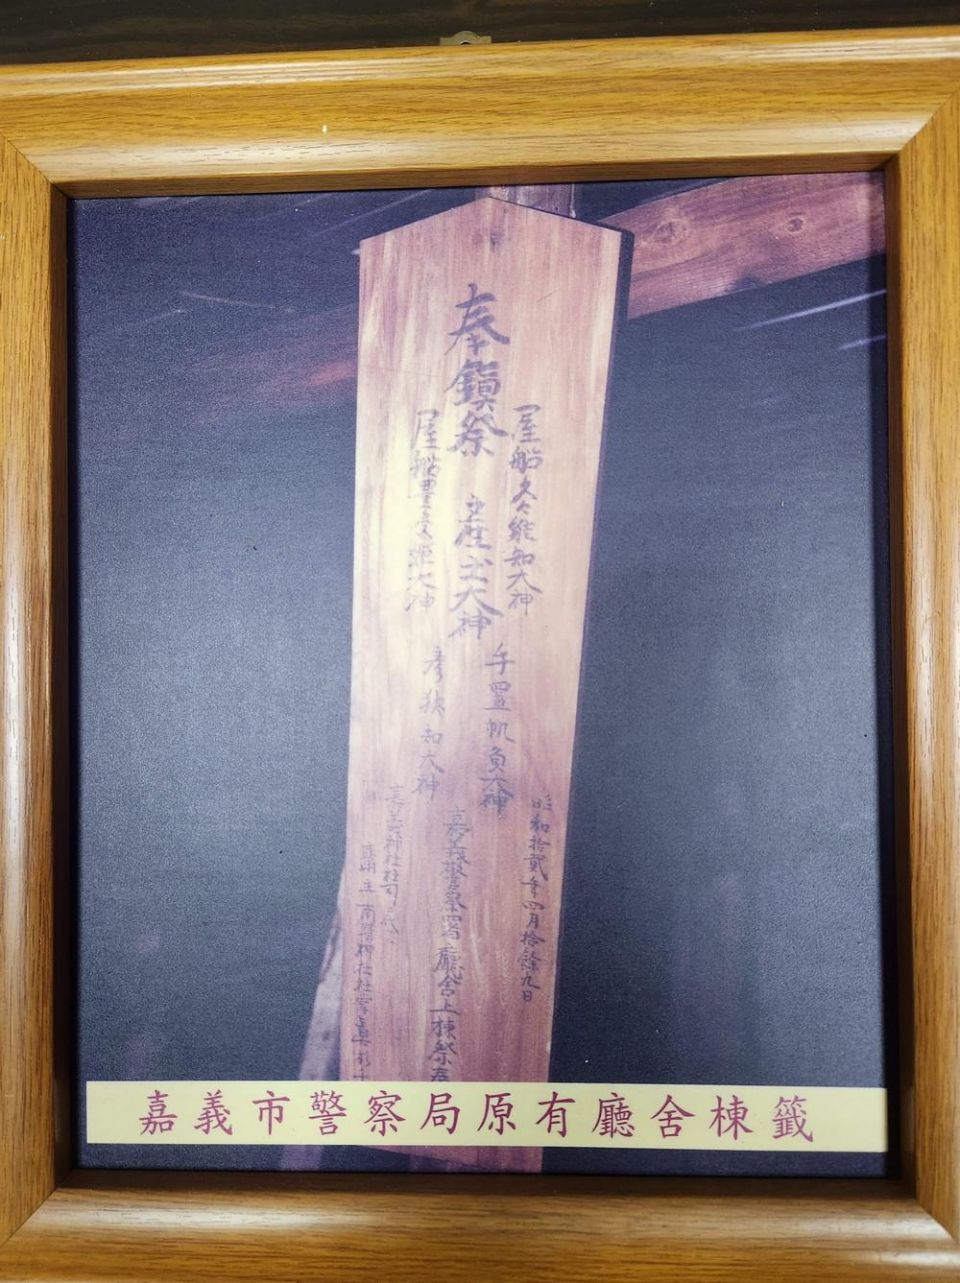 奉鎮祭 産土大神
屋船久久能知大神
屋船豊受姫大神
手置帆負大神
彦狭知大神
昭和拾貳年四月拾餘九日
嘉義警察署廳舍上棟祭
嘉義神社社司代
南靖神社社掌真杉千
嘉義市警察局原有廳舍棟籤